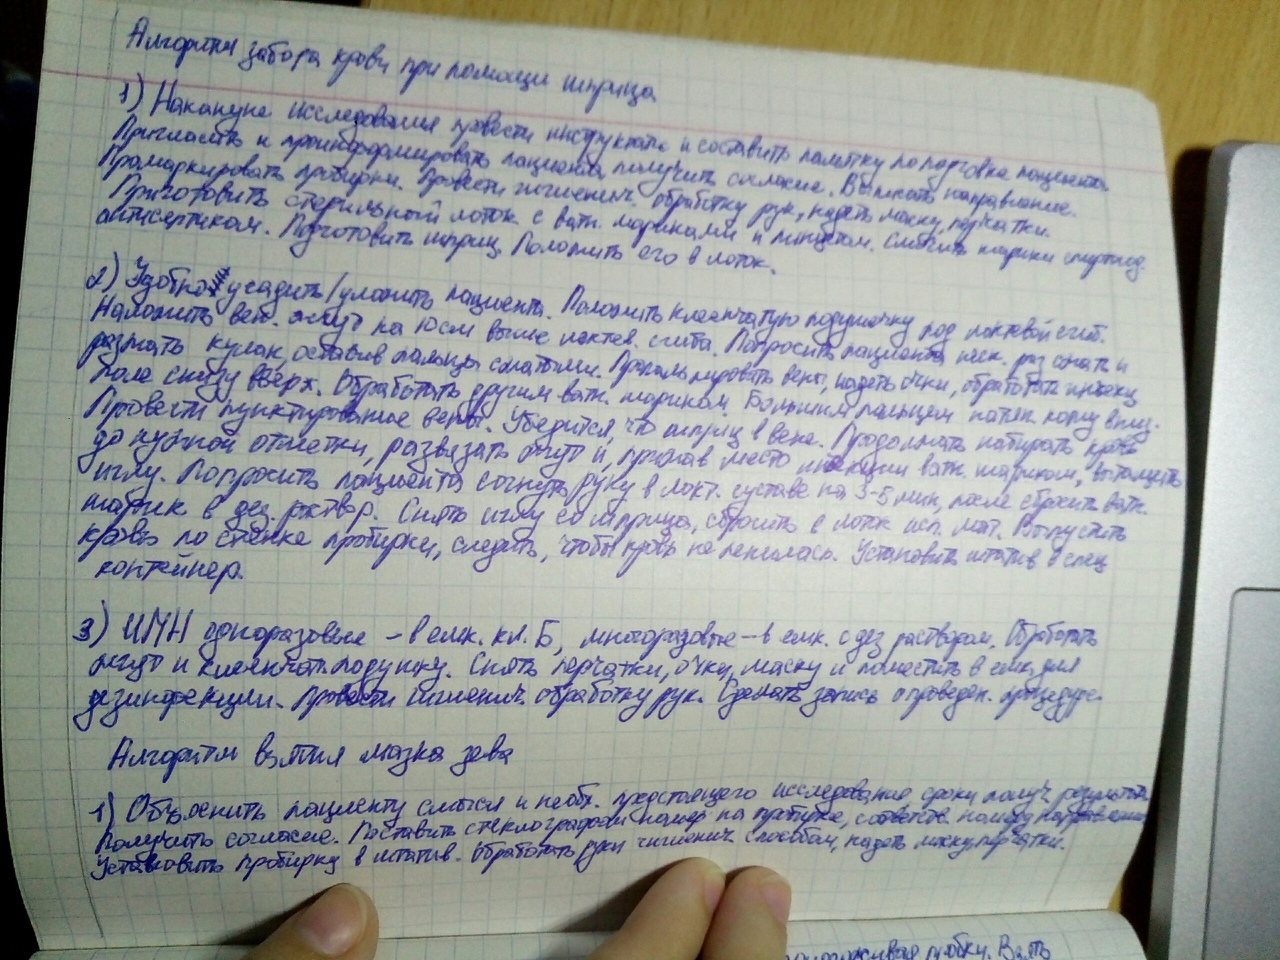 Алгоритм забора крови при помощи шприца
1) Накануне исследования провести инструктаж и составить памятку по подготовке пациента
Пригласить и проинформировать пациента, получить согласие. Выписать направление.
Промаркировать пробирки. Провести гигиенич. обработку рук, надеть маску, перчатки.
Приготовить стерильный лоток с ватн. шариками и пинцетом. Смочить шарики спиртосод.
антисептиком. Подготовить шприц. Положить его в лоток.
2) Удобно усадить/уложить пациента. Положить клеенчатую подушечку под локтевой сгиб.
Наложить вен. жгут на 10см выше локтев. сгиба. Попросить пациента неск. раз сжать и
разжать кулак, оставив пальцы сжатыми. Пропальпировать вены, надеть очки, обработать инъекц.
поле снизу вверх. Обработать другим ватн. шариком. Большим пальцем натян. кожу вниз.
Провести пунктирование вены. Убедится, что шприц в вене. Продолжать набирать кровь
до нужной отметки, развязать жгут и, прижав место инъекции ватн. шариком, вытащить
иглу. Попросить пациента согнуть руку в локт. суставе на 3-5 мин, после сбросить ватн.
шарик в дез. раствор. Снять иглу со шприца, сбросить в лоток исп. мат. Выпустить
кровь по стенке пробирки, следить, чтобы кровь не пенилась. Установить штатив в спец
контейнер.
3) ИМН одноразовые – в емк. кл. Б, многоразовые – в емк. с дез раствором. Обработать
жгут и клеенчат. подушку. Снять перчатки, очки, маску и поместить в емк. для
дезинфекции. Провести гигиенич. обработку рук. Сделать запись о проведен. процедуре.
Алгоритм взятия мазка зева
1) Объяснить пациенту смысл и необх. предстоящего исследования, сроки получ. результата
Получить согласие. Поставить стеклографом номер на пробирке, соответств. номеру направления
Установить пробирку в штатив. Обработать руки гигиенич. способом, надеть маску, перчатки.
губку. Взять